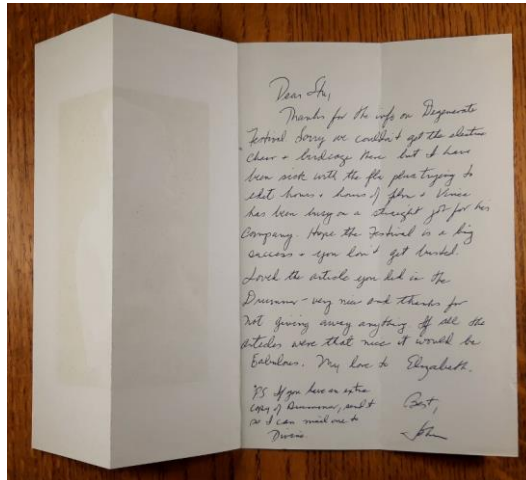 Dear Stu,
Thanks for the info on Degenerate
Festival Sorry we couldn't get the electric
chair + birdcage there but I have
been sick with the flu plus trying to
edit hours + hours of film + Vince
has been busy on a straight job for his
Company. Hope the Festival is a big
success + you don't get busted.
Loved the article you did in the
Drummer - very nice and thanks for
not giving away anything If all the
articles were that nice it would be
fabulous. My love to Elizabeth.
Best,
John
PS If you have an extra
copy of Drummer, send it
so I can mail one to
Divine